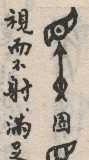 圖
視而不射滿足